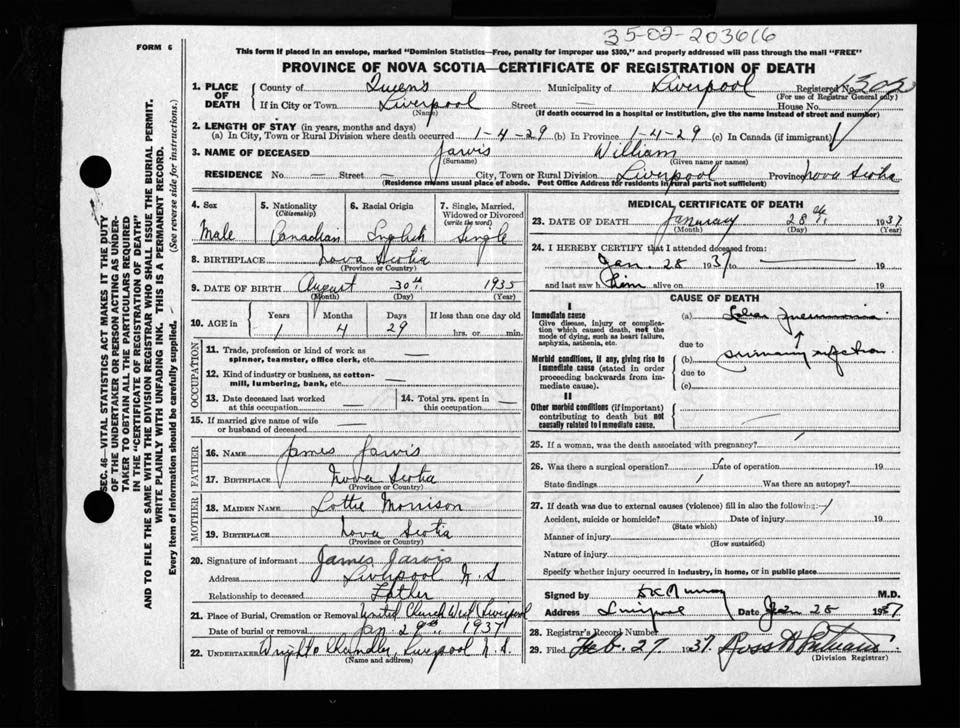 35-02-203616
FORM 6
This form if placed in an envelope, marked "Dominion Statistics—Free, penalty for improper use $300," and properly addressed will pass through the mail "FREE"
PROVINCE OF NOVA SCOTIA—CERTIFICATE OF REGISTRATION OF DEATH
SEC. 46—VITAL STATISTICS ACT MAKES IT THE DUTY
OF THE UNDERTAKER OR PERSON ACTING AS UNDER-
TAKER TO OBTAIN ALL THE PARTICULARS REQUIRED
IN THE "CERTIFICATE OF REGISTRATION OF DEATH"
AND TO FILE THE SAME WITH THE DIVISION REGISTRAR WHO SHALL ISSUE THE BURIAL PERMIT.
WRITE PLAINLY WITH UNFADING INK. THIS IS A PERMANENT RECORD.
Every item of information should be carefully supplied. (See reverse side for instructions.)
1. PLACE OF DEATH County of Queens Municipality of Liverpool Registered No. 1302
(For use of Registrar General only)
If in City or Town Liverpool Street — House No.
(Name) (If death occurred in a hospital or institution, give the name instead of street and number)
2. LENGTH OF STAY (in years, months and days)
(a) In City, Town or Rural Division where death occurred 1-4-29 (b) In Province 1-4-29 (c) In Canada (if immigrant)
3. NAME OF DECEASED Jarvis William
(Surname) (Given name or names)
RESIDENCE No. — Street — City, Town or Rural Division Liverpool Province Nova Scotia
(Residence means usual place of abode. Post Office Address for residents in rural parts not sufficient)
4. Sex 5. Nationality 6. Racial Origin 7. Single, Married,
(Citizenship) Widowed or Divorced
(write the word)
Male Canadian English Single
8. BIRTHPLACE Nova Scotia
(Province or Country)
9. DATE OF BIRTH August 30th 1935
(Month) (Day) (Year)
10. AGE in Years Months Days If less than one day old
1 4 29 hrs. or min.
OCCUPATION
11. Trade, profession or kind of work as
spinner, teamster, office clerk, etc. —
12. Kind of industry or business, as cotton-
mill, lumbering, bank, etc. —
13. Date deceased last worked 14. Total yrs. spent in
at this occupation — this occupation —
15. If married give name of wife
or husband of deceased —
FATHER
16. NAME James Jarvis
17. BIRTHPLACE Nova Scotia
(Province or Country)
MOTHER
18. MAIDEN NAME Lottie Morrison
19. BIRTHPLACE Nova Scotia
(Province or Country)
20. Signature of informant James Jarvis
Address Liverpool N.S
Relationship to deceased Father
21. Place of Burial, Cremation or Removal United Church West Liverpool
Date of burial or removal Jan 29th 1937
22. UNDERTAKER Wright & Chandler, Liverpool N.S.
(Name and address)
MEDICAL CERTIFICATE OF DEATH
23. DATE OF DEATH January 28th 1937
(Month) (Day) (Year)
24. I HEREBY CERTIFY that I attended deceased from:
Jan. 28 1937 to — 19
and last saw him alive on 19
CAUSE OF DEATH
I
Immediate cause
Give disease, injury or complica-
tion which caused death, not the
mode of dying, such as heart failure,
asphyxia, asthenia, etc.
(a) Lobar pneumonia
due to
Morbid conditions, if any, giving rise to
immediate cause (stated in order
proceeding backwards from im-
mediate cause).
(b) infection
due to
(c)
II
Other morbid conditions (if important)
contributing to death but not
causally related to immediate cause.
25. If a woman, was the death associated with pregnancy?
26. Was there a surgical operation? Date of operation 19
State findings Was there an autopsy?
27. If death was due to external causes (violence) fill in also the following:
Accident, suicide or homicide? Date of injury 19
(State which)
Manner of injury
(How sustained)
Nature of injury
Specify whether injury occurred in industry, in home, or in public place
Signed by Murray M.D.
Address Liverpool Date Jan 28 1937
28. Registrar's Record Number
29. Filed Feb. 27. 1937. Ross
(Division Registrar)